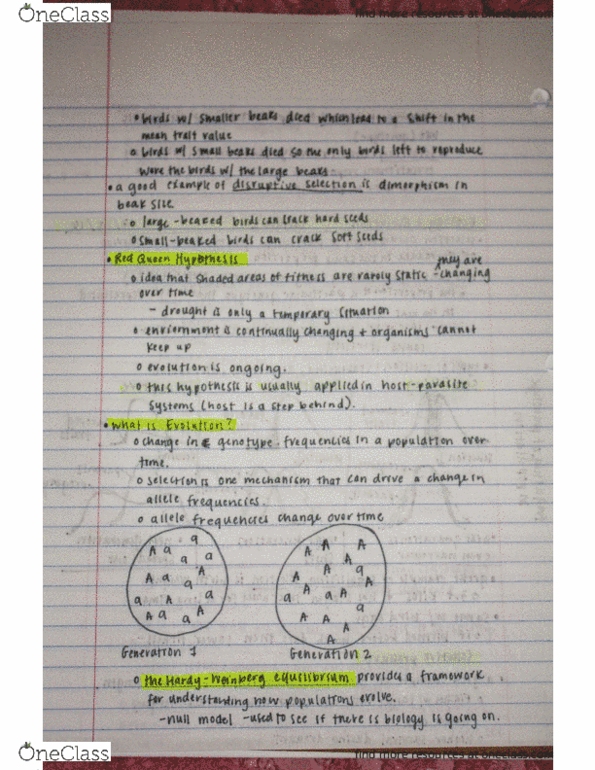 OneClass
find more resources at oneclass.com
• birds w/ smaller beaks died which lead to a shift in the
mean trait value
o birds w/ small beaks died so the only birds left to reproduce
were the birds w/ the large beaks
• a good example of disruptive selection is dimorphism in
beak size
o large-beaked birds can crack hard seeds
o small-beaked birds can crack soft seeds
• Red Queen Hypothesis
o idea that shaded areas of fitness are rarely static - they are changing
over time
- drought is only a temporary situation
o enviornment is continually changing + organisms cannot
keep up
o evolution is ongoing.
o this hypothesis is usually applied in host-parasite
systems (host is a step behind).
• What is Evolution?
o change in genotype frequencies in a population over
time.
o selection is one mechanism that can drive a change in
allele frequencies.
o allele frequencies change over time
A a a a a
A a a A
a A a
A a a A
A A A
A A
A A A
a A a A
a
A A A
A
Generation 1 Generation 2
o the Hardy-Weinberg equilibrium provides a framework
for understanding how populations evolve.
- null model - used to see if there is biology is going on.
OneClass
find more resources at oneclass.com